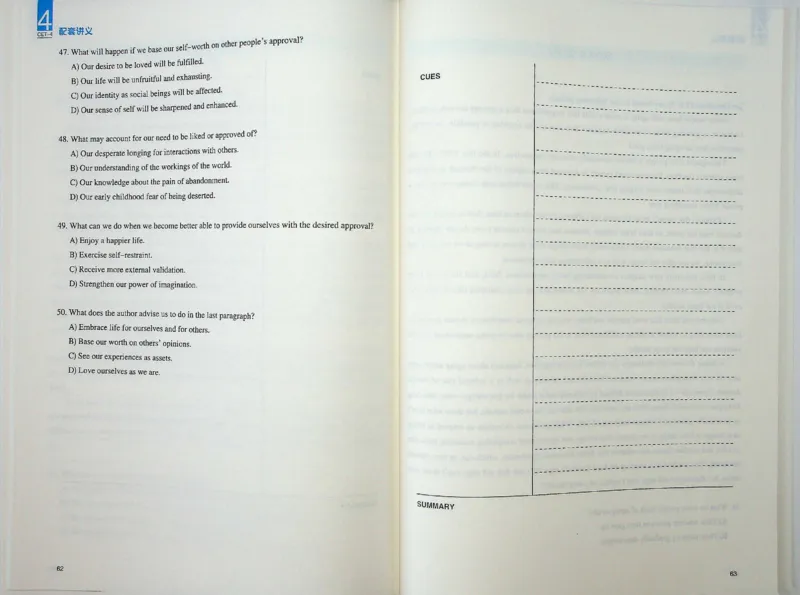 4
CET-4
配套讲义
47. What will happen if we base our self-worth on other people's approval?
A) Our desire to be loved will be fulfilled.
B) Our life will be unfruitful and exhausting.
C) Our identity as social beings will be affected.
D) Our sense of self will be sharpened and enhanced.
48. What may account for our need to be liked or approved of?
A) Our desperate longing for interactions with others.
B) Our understanding of the workings of the world.
C) Our knowledge about the pain of abandonment.
D) Our early childhood fear of being deserted.
49. What can we do when we become better able to provide ourselves with the desired approval?
A) Enjoy a happier life.
B) Exercise self-restraint.
C) Receive more external validation.
D) Strengthen our power of imagination.
50. What does the author advise us to do in the last paragraph?
A) Embrace life for ourselves and for others.
B) Base our worth on others' opinions.
C) See our experiences as assets.
D) Love ourselves as we are.
62
CUES
SUMMARY
63